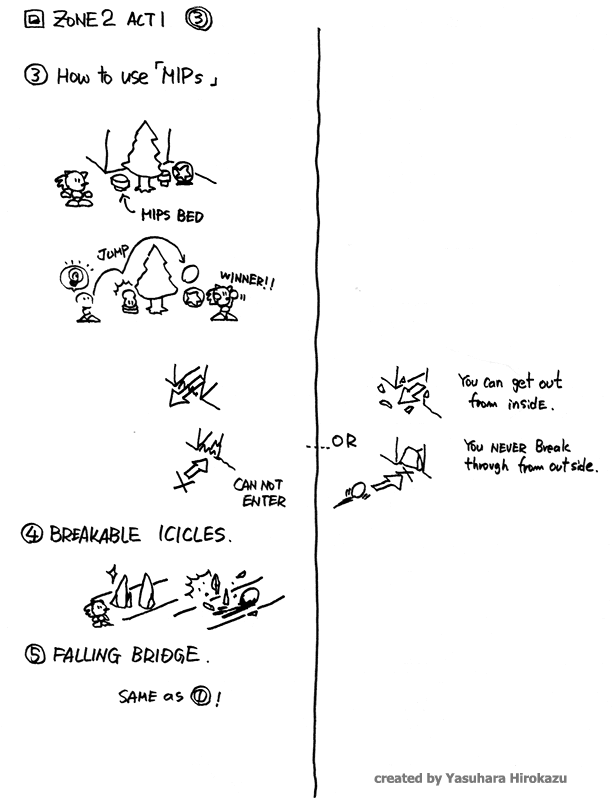 ZONE 2 ACT 1 ③
③ How to use「MIPs」
MIPS BED
JUMP
WINNER!!
You can get out
from inside.
OR
You NEVER Break
through from outside.
CAN NOT
ENTER
④ BREAKABLE ICICLES.
⑤ FALLING BRIDGE.
SAME as ①!
created by Yasuhara Hirokazu